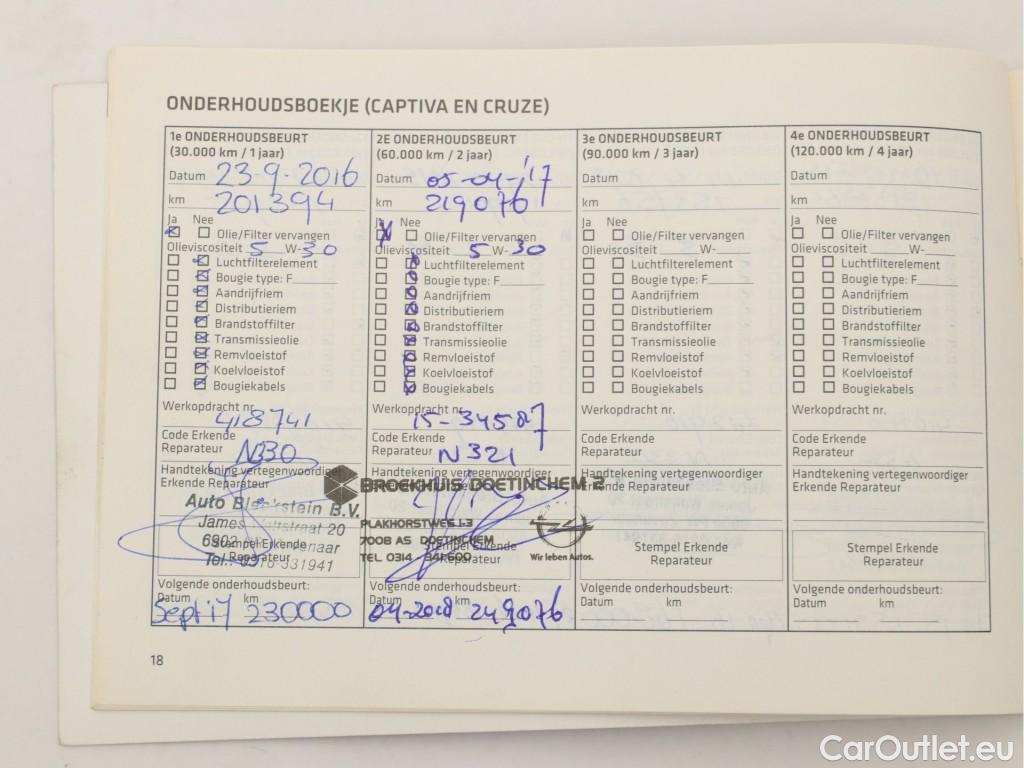 ONDERHOUDSBOEKJE (CAPTIVA EN CRUZE)
1e ONDERHOUDSBEURT
(30.000 km / 1 jaar)
Datum 23-9-2016
km 201394
Ja Nee
Olie/Filter vervangen
Olieviscositeit 5 W-30
Luchtfilterelement
Bougie type: F
Aandrijfriem
Distributieriem
Brandstoffilter
Transmissieolie
Remvloeistof
Koelvloeistof
Bougiekabels
Werkopdracht nr.
418741
Code Erkende
Reparateur N330
Handtekening vertegenwoordiger
Erkende Reparateur
Auto B.V.
James 20
6902
Stempel Erkende
Reparateur
Tel.: 331941
Volgende onderhoudsbeurt:
Datum km
Sept 17 230000
2E ONDERHOUDSBEURT
(60.000 km / 2 jaar)
Datum 05-04-'17
km 219076
Ja Nee
Olie/Filter vervangen
Olieviscositeit 5 W-30
Luchtfilterelement
Bougie type: F
Aandrijfriem
Distributieriem
Brandstoffilter
Transmissieolie
Remvloeistof
Koelvloeistof
Bougiekabels
Werkopdracht nr.
15-34587
Code Erkende
Reparateur N321
Handtekening vertegenwoordiger
Erkende Reparateur
BROEKHUIS DOETINCHEM
PLAKHORSTWEG 1-3
7008 AS DOETINCHEM
TEL 0314 341600
Wir leben Autos.
Stempel Erkende
Reparateur
Volgende onderhoudsbeurt:
Datum km
04-2018 249076
3e ONDERHOUDSBEURT
(90.000 km / 3 jaar)
Datum
km
Ja Nee
Olie/Filter vervangen
Olieviscositeit W-
Luchtfilterelement
Bougie type: F
Aandrijfriem
Distributieriem
Brandstoffilter
Transmissieolie
Remvloeistof
Koelvloeistof
Bougiekabels
Werkopdracht nr.
Code Erkende
Reparateur
Handtekening vertegenwoordiger
Erkende Reparateur
Stempel Erkende
Reparateur
Volgende onderhoudsbeurt:
Datum km
4e ONDERHOUDSBEURT
(120.000 km / 4 jaar)
Datum
km
Ja Nee
Olie/Filter vervangen
Olieviscositeit W-
Luchtfilterelement
Bougie type: F
Aandrijfriem
Distributieriem
Brandstoffilter
Transmissieolie
Remvloeistof
Koelvloeistof
Bougiekabels
Werkopdracht nr.
Code Erkende
Reparateur
Handtekening vertegenwoordiger
Erkende Reparateur
Stempel Erkende
Reparateur
Volgende onderhoudsbeurt:
Datum km
18
CarOutlet.eu